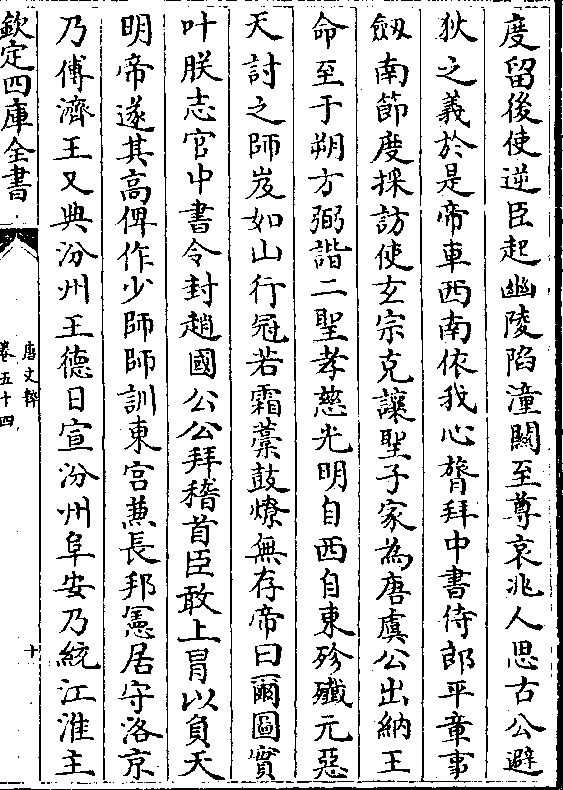 度留後使逆臣起幽陵陷潼關至尊哀兆人思古公避
狄之義於是帝車西南依我心膂拜中書侍郎平章事
劔南節度採訪使玄宗克讓聖子家為唐虞公出納王
命至于朔方弼諧二聖孝慈光明自西自東殄殲元惡
天討之師岌如山行冦若霜藁鼓燎無存帝曰爾圖實
叶朕志官中書令封趙國公公拜稽首臣敢上冐以負天
明帝遂其高俾作少師師訓東宮兼長邦憲居守洛京
乃傅濟王又典汾州王德日宣汾州阜安乃統江淮主
欽定四庫全書
唐文粹
卷五十四
十